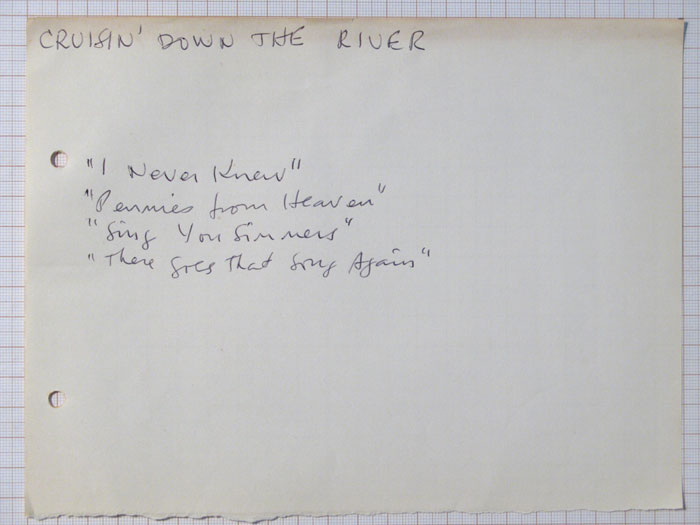 CRUISIN' DOWN THE RIVER
"I Never Knew"
"Pennies from Heaven"
"Sing You Sinners"
"There goes that Song Again"